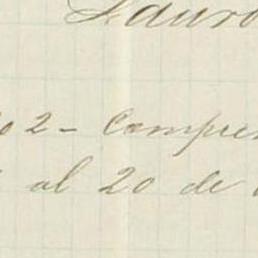 Lauro
2 - Compre
al 20 de